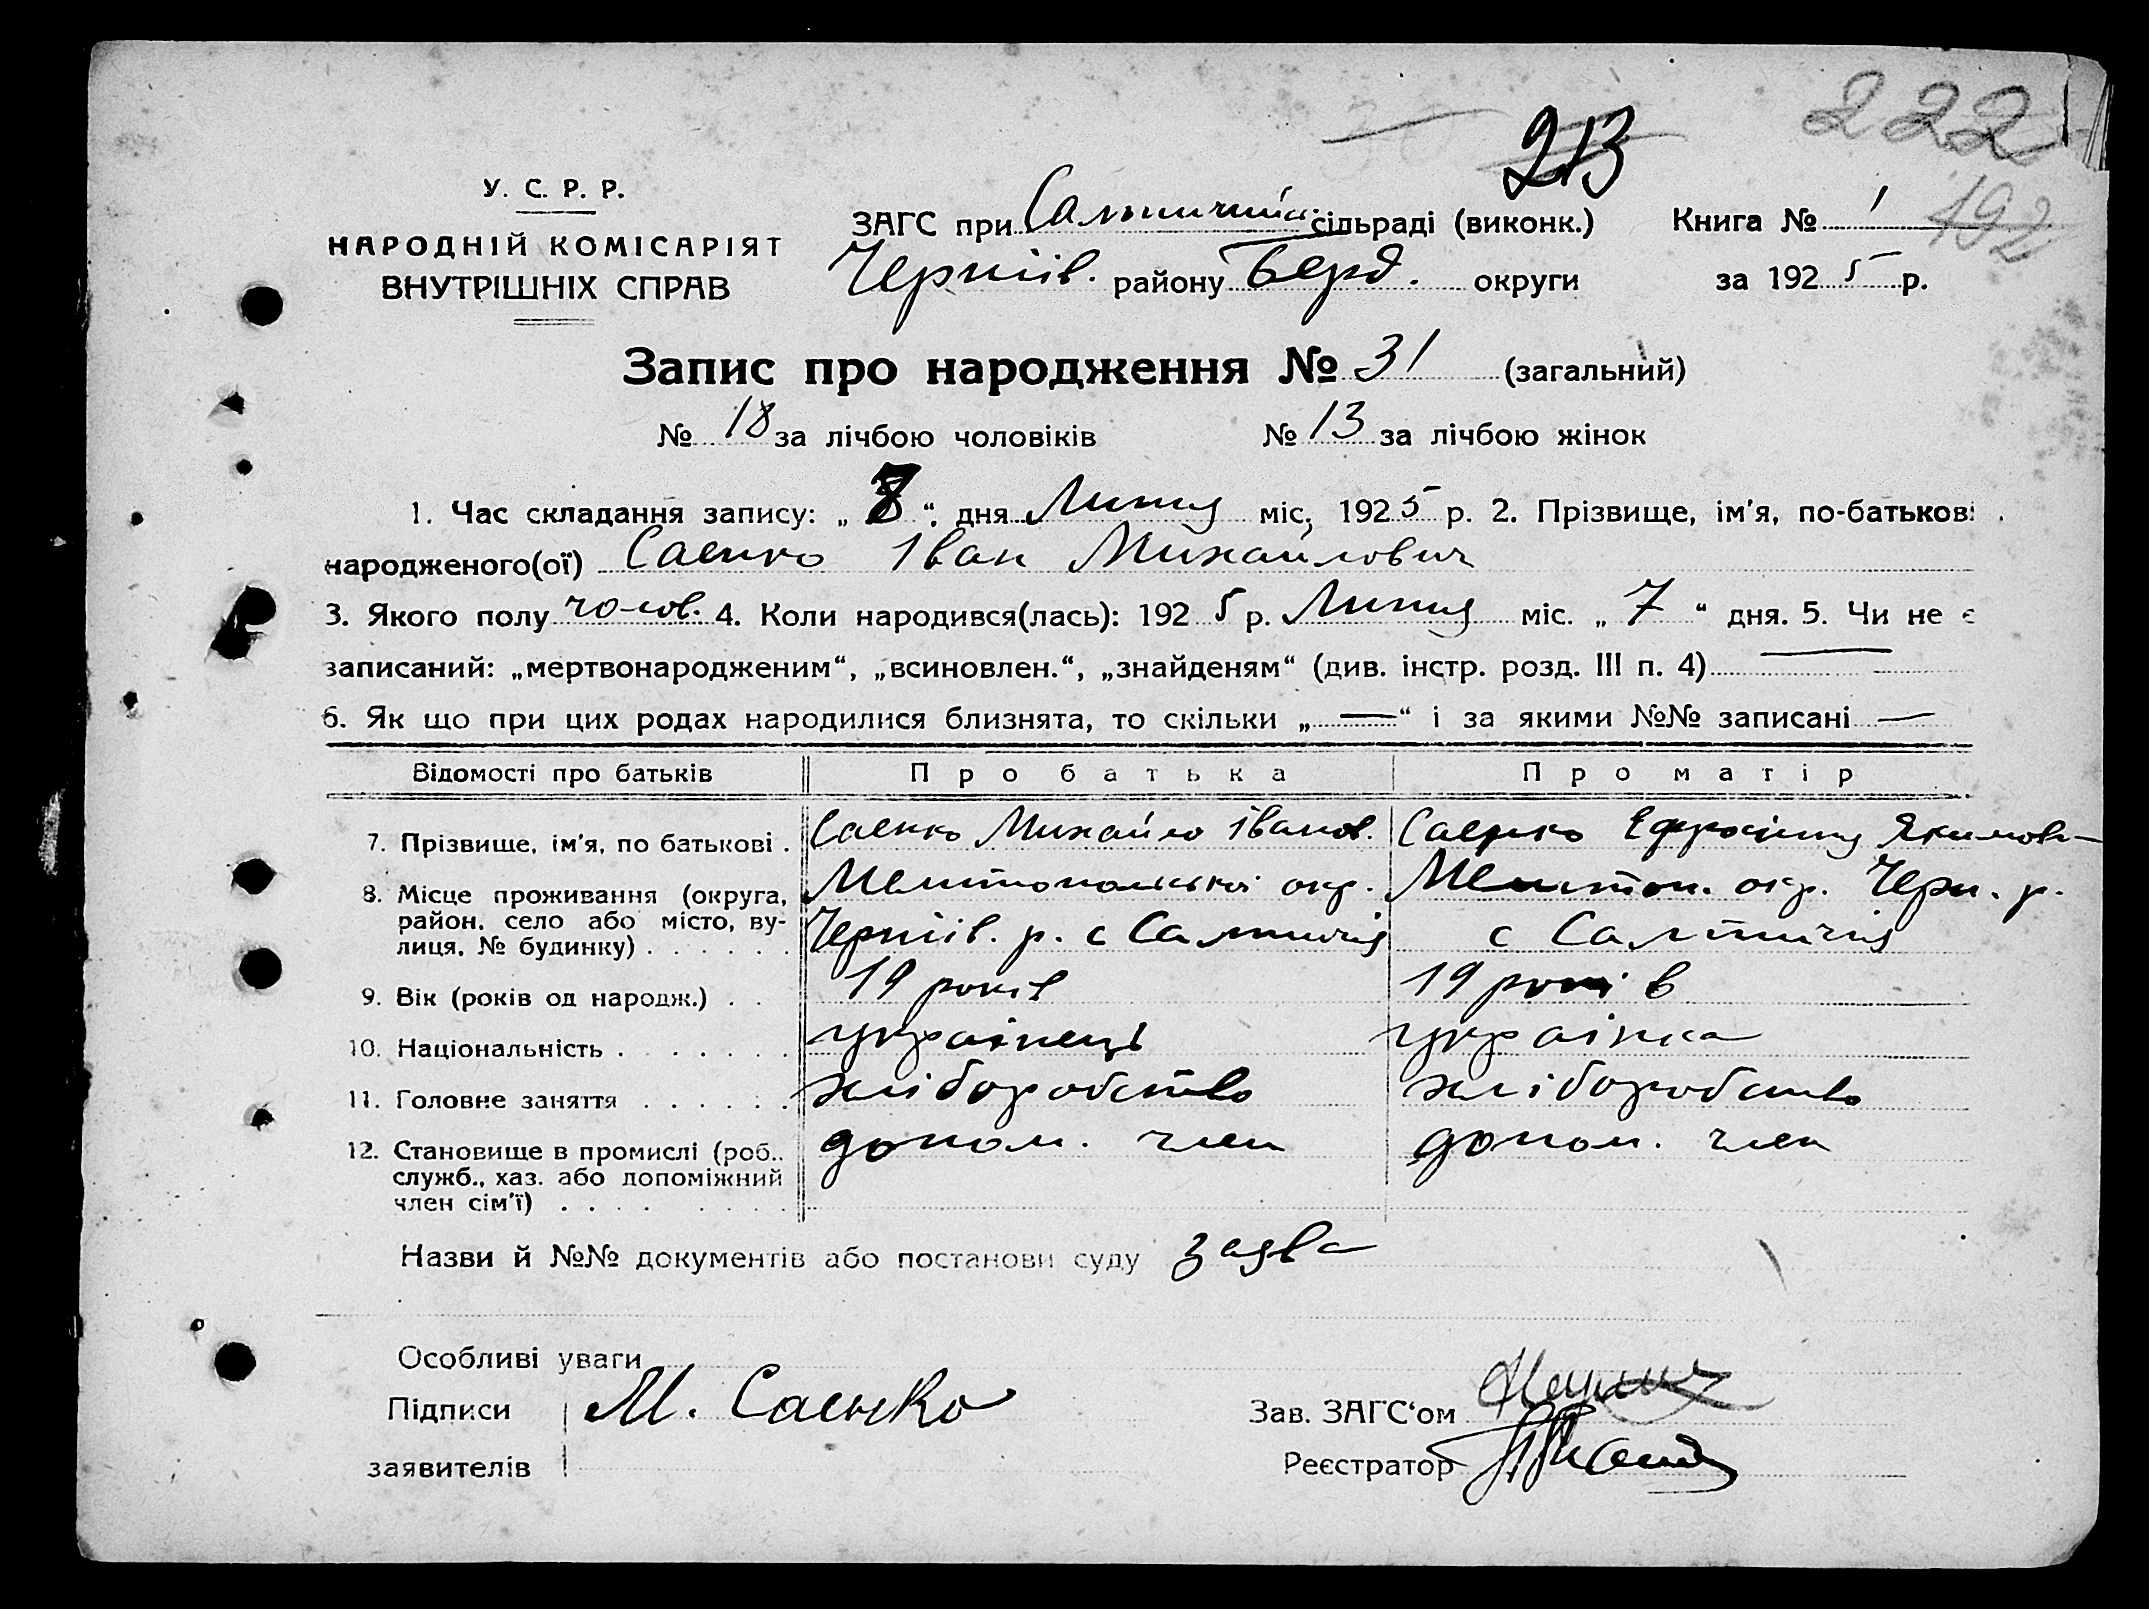 222
213
192
У. С. Р. Р.
НАРОДНІЙ КОМІСАРІЯТ
ВНУТРІШНІХ СПРАВ
ЗАГС при сільраді (виконк.) Книга № 1
Черніів. району Берд. округи за 1925 р.
Запис про народження № 31 (загальний)
№ 18 за лічбою чоловіків № 13 за лічбою жінок
1. Час складання запису: „ “ дня Липня міс. 1925 р. 2. Прізвище, ім'я, по-батькові
народженого(ої) Саенко Іван Михайлович
3. Якого полу чолов. 4. Коли народився(лась): 1925 р. Липня міс. „ 7 “ дня. 5. Чи не є
записаний: „мертвонародженим“, „всиновлен.“, „знайденям“ (див. інстр. розд. III п. 4) —
6. Як що при цих родах народилися близнята, то скільки „ — “ і за якими №№ записані —
Відомості про батьків Про батька Про матір
7. Прізвище, ім'я, по батькові . Саенко Михайло Іванов. Саенко Ефросіния Якимовн
8. Місце проживання (округа, Мелитопольскої окр. Мелитоп. окр. Черн. р.
район, село або місто, ву- Черніів. р. с Салтичия с Салтичия
лиця, № будинку) . . . . . .
9. Вік (років од народж.) . . 19 років 19 років
10. Національність . . . . . . . украінець украінка
11. Головне заняття . . . . . . хліборобство хліборобство
12. Становище в промислі (роб., допом. член допом. член
служб., хаз. або допоміжний
член сім'ї) . . . . . . . .
Назви й №№ документів або постанови суду заява
Особливі уваги
Підписи М. Саенко Зав. ЗАГС‘ом
заявителів Реєстратор